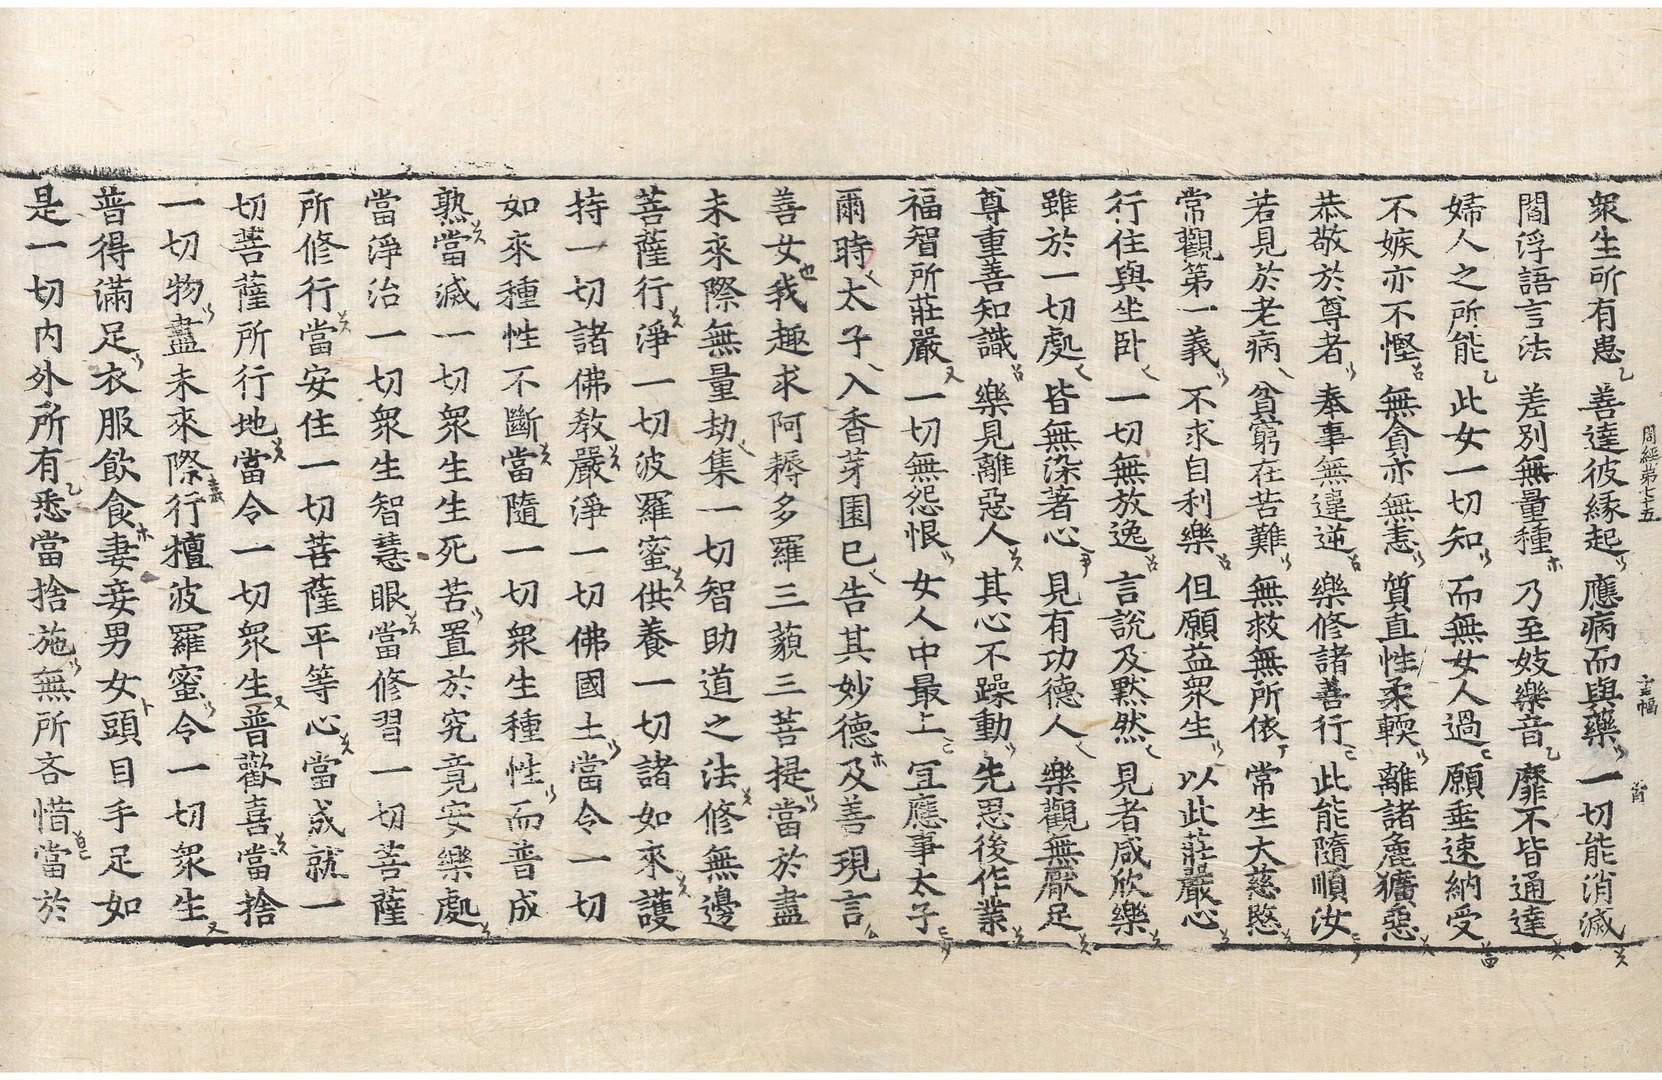 衆生所有患 善達彼縁起 應病而與藥 一切能消滅
閻浮語言法 差別無量種 乃至妓樂音 靡不皆通達
婦人之所能 此女一切知 而無女人過 願垂速納受
不嫉亦不慳 無貪亦無恚 質直性柔軟 離諸麁獷惡
恭敬於尊者 奉事無違逆 樂修諸善行 此能隨順汝
若見於老病 貧窮在苦難 無救無所依 常生大慈愍
常觀第一義 不求自利樂 但願益衆生 以此莊嚴心
行住與坐卧 一切無放逸 言說及黙然 見者咸欣樂
雖於一切處 皆無染著心 見有功德人 樂觀無厭足
尊重善知識 樂見離惡人 其心不躁動 先思後作業
福智所莊嚴 一切無怨恨 女人中最上 冝應事太子
爾時太子入香芽園已告其妙德及善現言
善女我趣求阿耨多羅三藐三菩提當於盡
未來際無量劫集一切智助道之法修無邊
菩薩行淨一切波羅蜜供養一切諸如來護
持一切諸佛教嚴淨一切佛國土當令一切
如來種性不斷當隨一切衆生種性而普成
熟當滅一切衆生生死苦置於究竟安樂處
當淨治一切衆生智慧眼當修習一切菩薩
所修行當安住一切菩薩平等心當成就一
切菩薩所行地當令一切衆生普歡喜當捨
一切物盡未來際行檀波羅蜜令一切衆生
普得滿足衣服飲食妻妾男女頭目手足如
是一切內外所有悉當捨施無所吝惜當於
周經第七十五